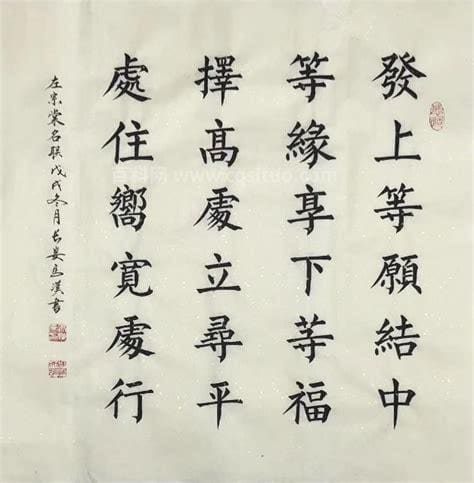 發上等願結中
等緣享下等福
擇高處立尋平
處住嚮寬處行
左宗棠名联戊戌冬月长馬漢書
百科网 www.cgsituo.com